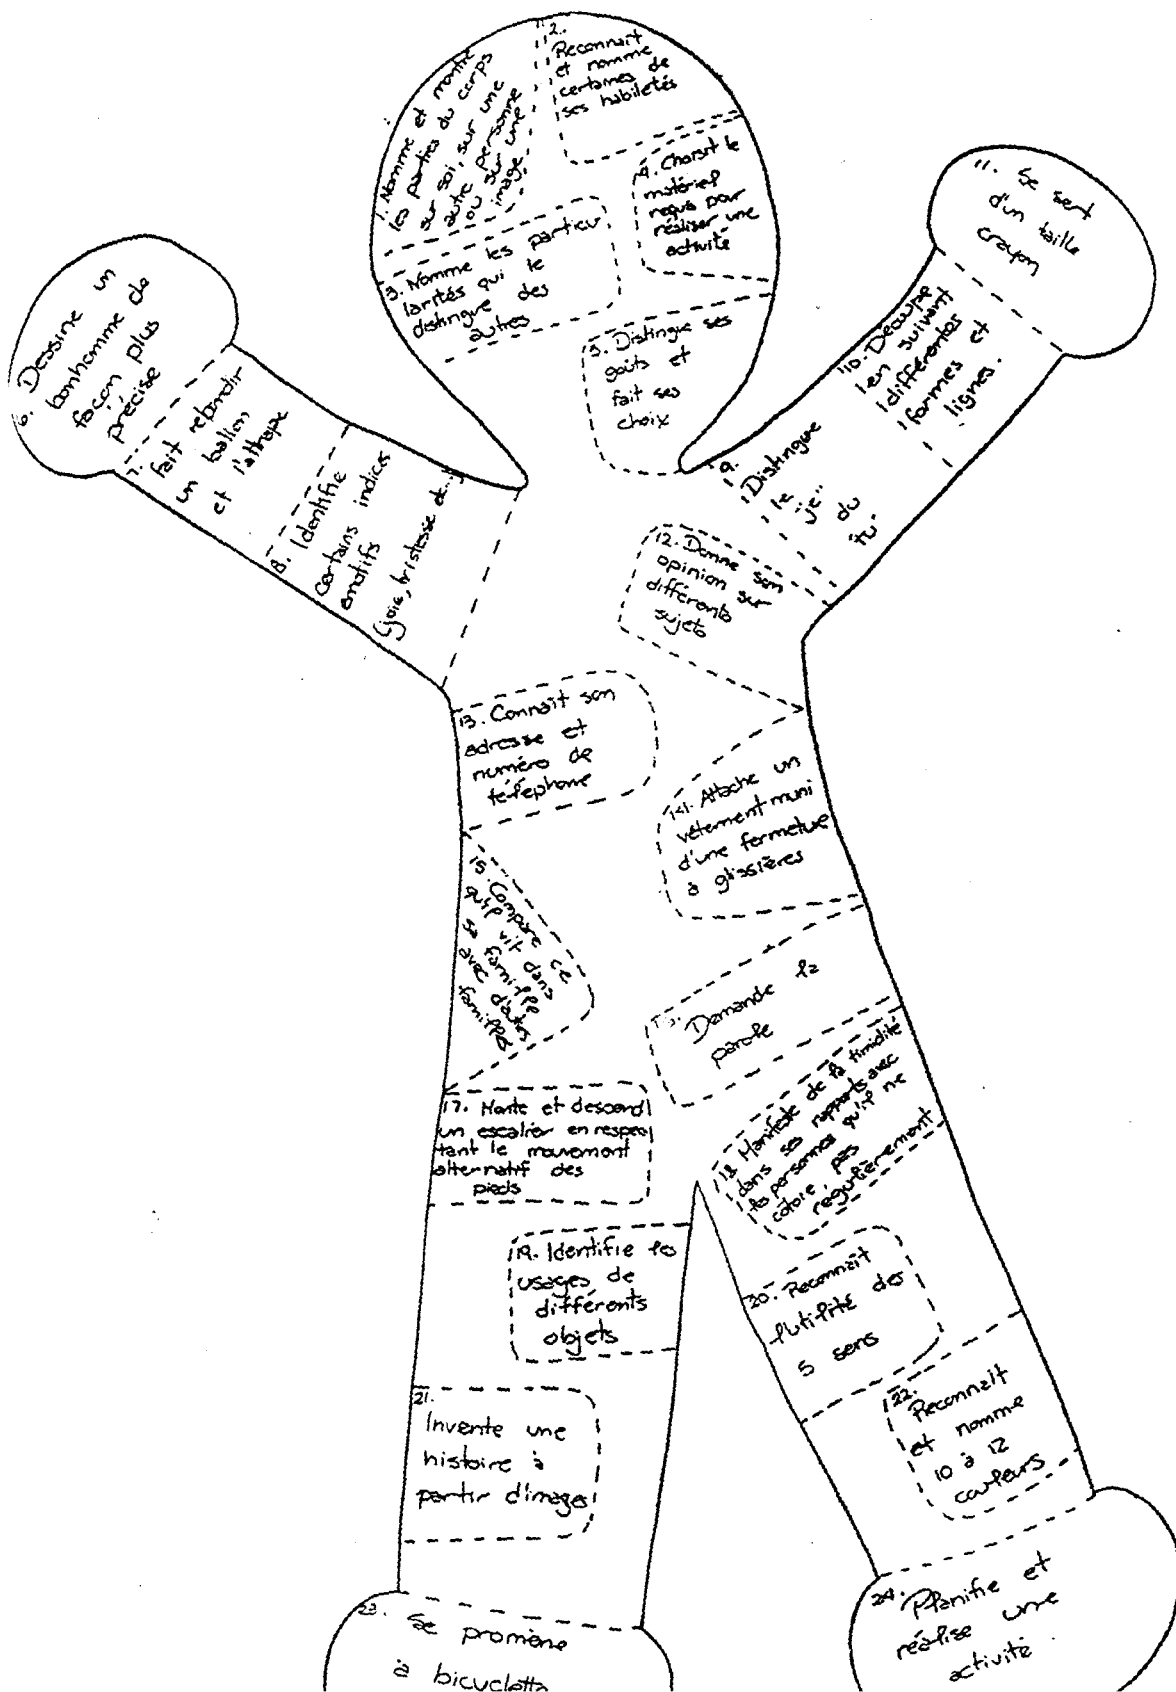 1. Nomme et montre
les parties du corps
sur soi, sur une
autre personne
ou sur une
image
2.
Reconnaît
et nomme
certaines de
ses habiletés
3. Nomme les particu
larités qui le
distingue des
autres
4. Choisit le
matériel
requis pour
réaliser une
activité
5. Distingue ses
goûts et
fait ses
choix
6. Dessine un
bonhomme de
façon plus
précise
7.
fait rebondir
un ballon
et l'attrape
8. Identifie
certains indices
émotifs
(joie, tristesse de...)
9.
Distingue
le "je" du
"tu"
10. Découpe
en suivant
différentes
formes et
lignes.
11. Se sert
d'un taille
crayon
12. Donne son
opinion sur
différents
sujets
13. Connaît son
adresse et
numéro de
téléphone
14. Attache un
vêtement muni
d'une fermeture
à glissières
15. Compare ce
qu'il vit dans
sa famille
avec d'autres
familles
16.
Demande la
parole
17. Monte et descend
un escalier en respec
tant le mouvement
alternatif des
pieds
18. Manifeste de la timidité
dans ses rapports avec
les personnes qu'il ne
côtoie pas
régulièrement
19. Identifie les
usages de
différents
objets
20. Reconnaît
l'utilité des
5 sens
21.
Invente une
histoire à
partir d'images
22.
Reconnaît
et nomme
10 à 12
couleurs
23. Se promène
à bicyclette
24.
Planifie et
réalise une
activité